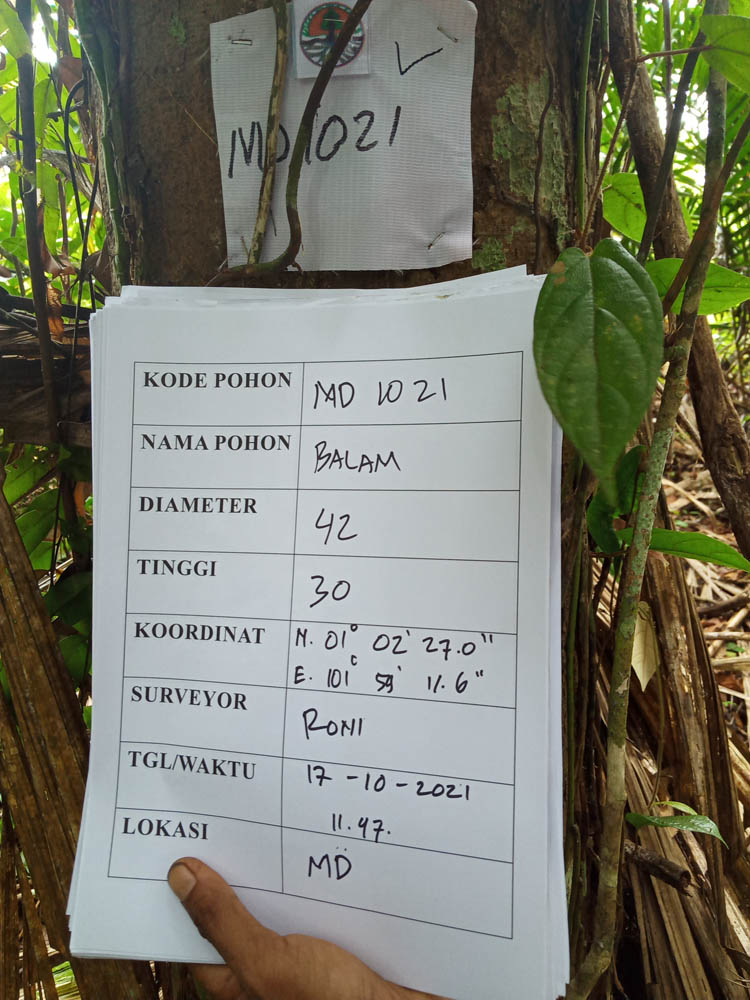 MD 1021
KODE POHON MD 1021
NAMA POHON BALAM
DIAMETER 42
TINGGI 30
KOORDINAT N. 01° 02' 27.0"
E. 101° 59' 11.6"
SURVEYOR RONI
TGL/WAKTU 17-10-2021
11.47.
LOKASI MD